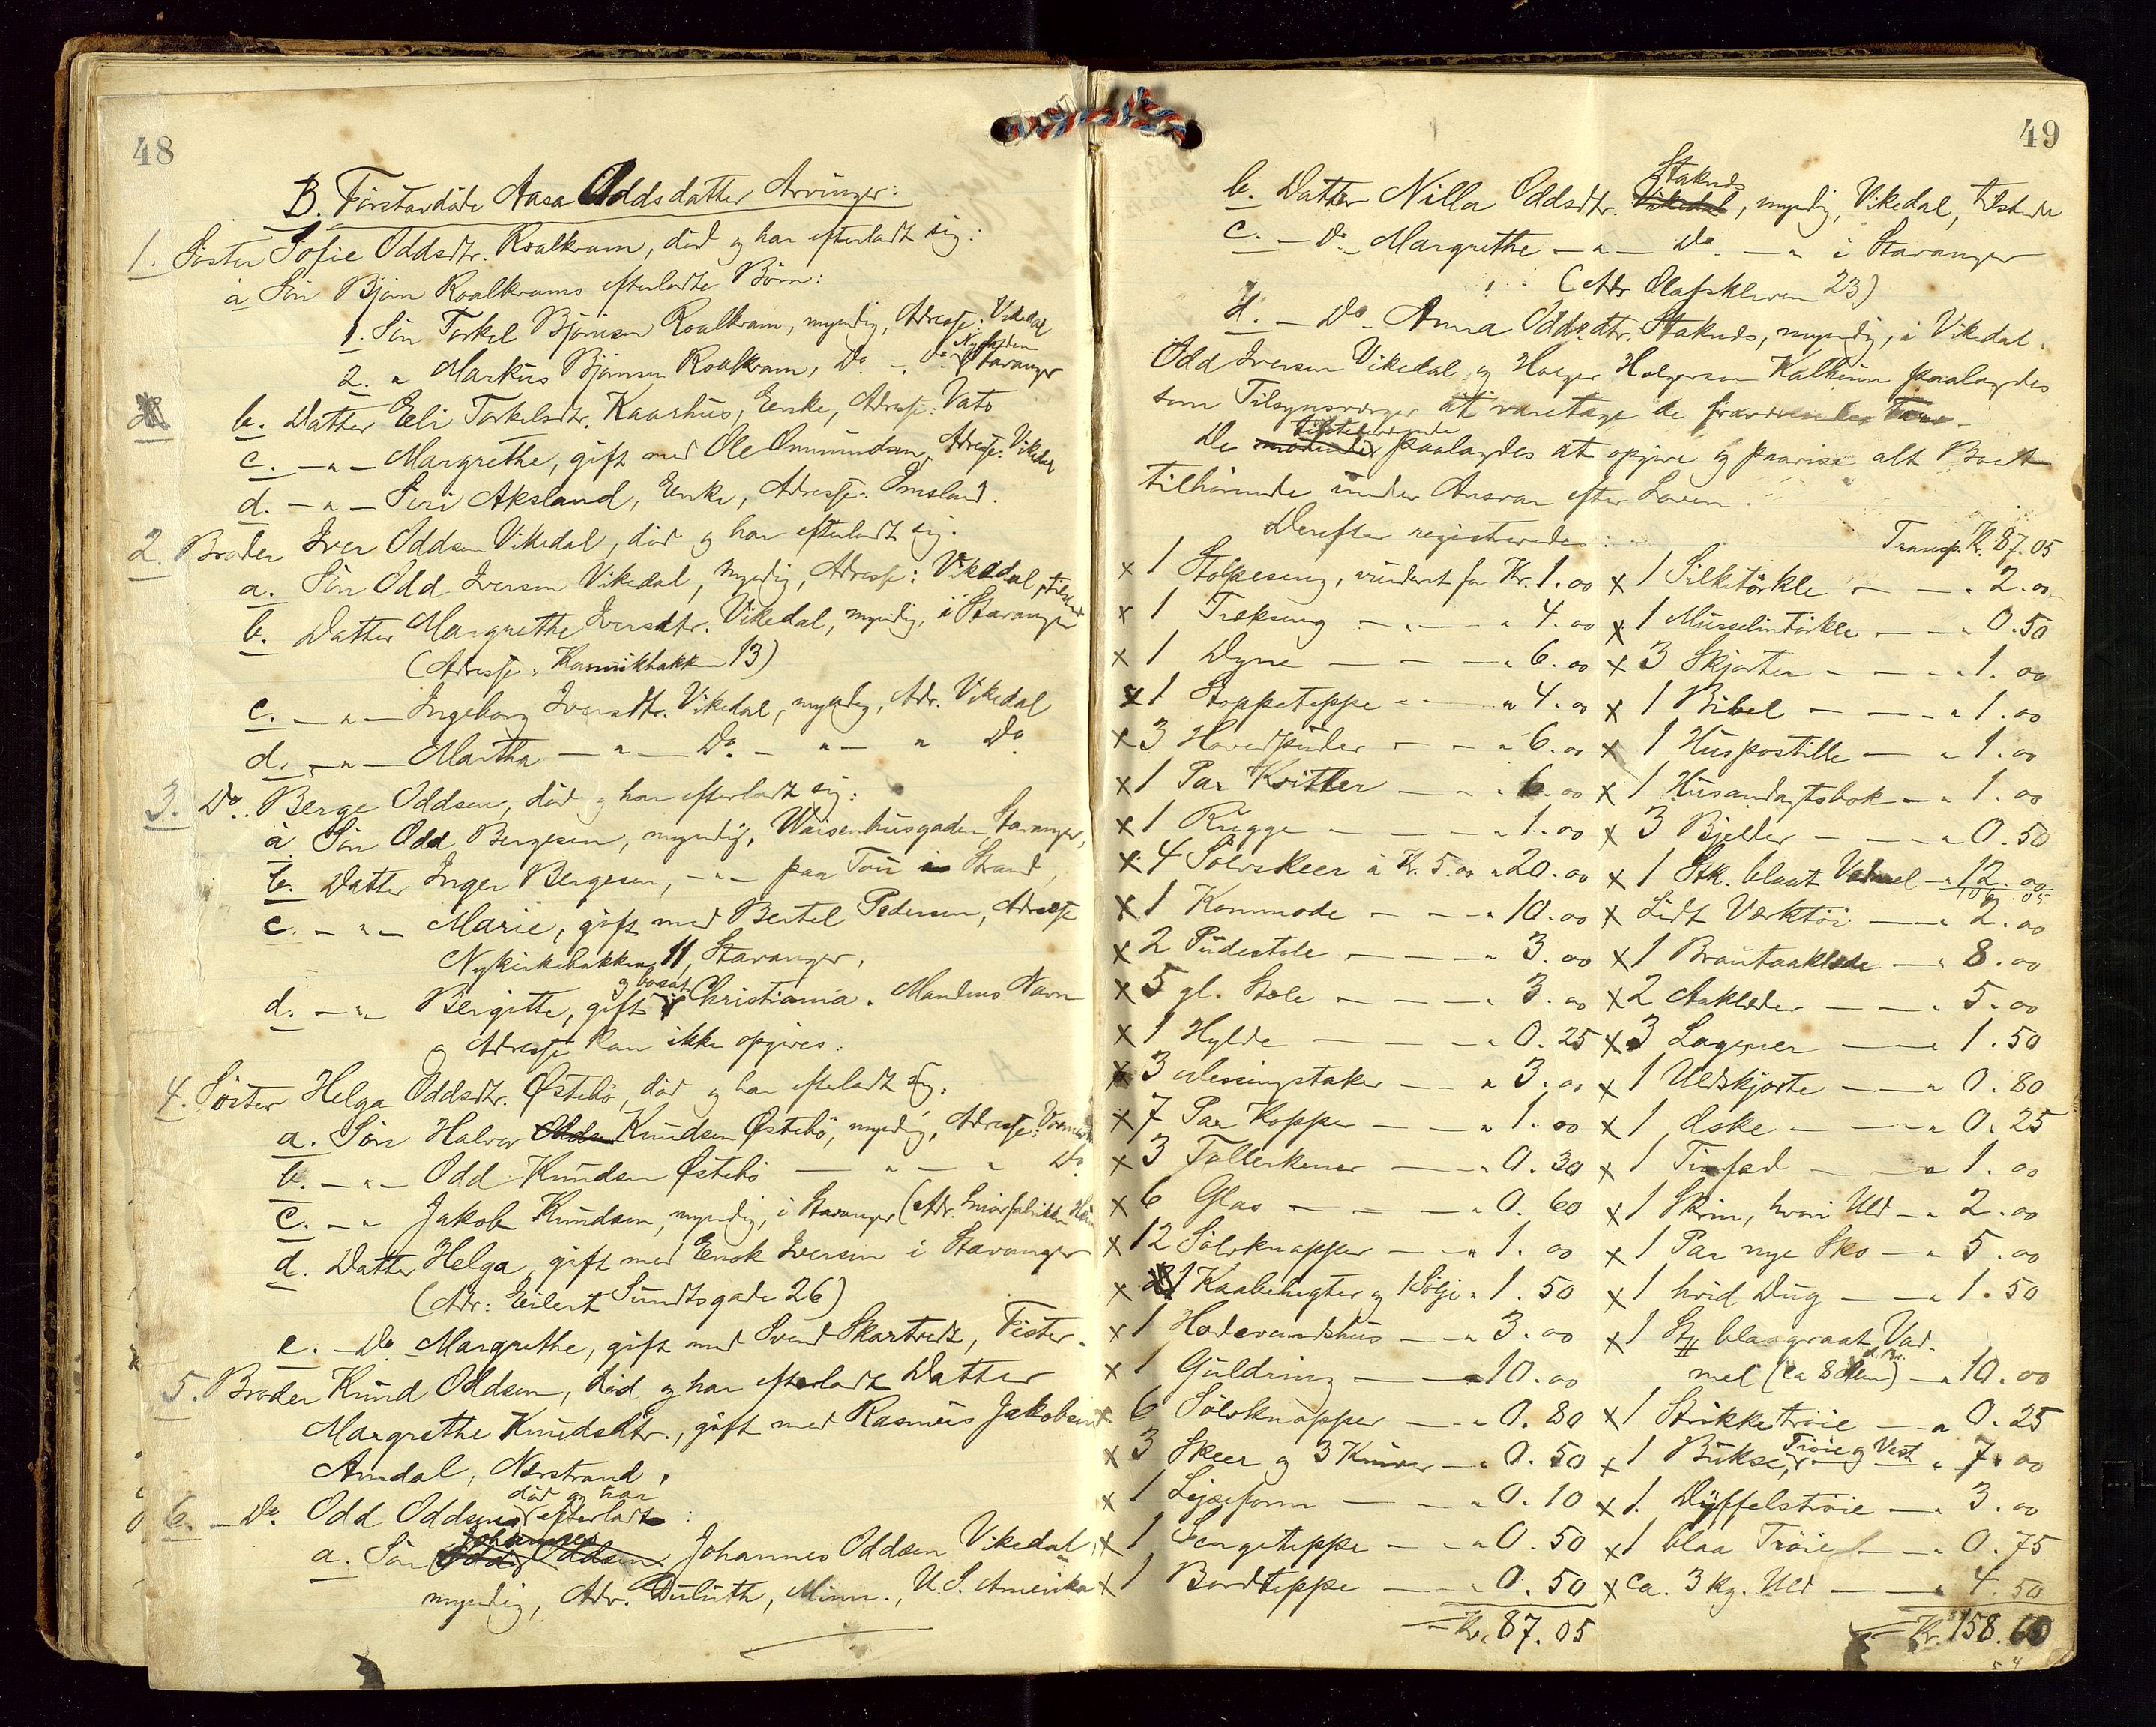 48
B. Førstavdøde Aasa Oddsdatter Arvinger:
1. Søster Sofie Oddsdtr. Roalkvam, død og har efterladt sig:
a Søn Bjørn Roalkvams efterladte Børn:
1. Søn Torkel Bjørnsen Roalkvam, myndig, Adresse: Vikedal
2. " Markus Bjørnsen Roalkvam, Do. -"- Do. Stavanger
b. Datter Eli Torkelsdtr. Kaarhus, Enke, Adresse: Vats
c. -"- Margrethe, gift med Ole Ommundsen, Adresse: Vikedal
d. -"- Siri Aksland, Enke, Adresse: Imsland.
2. Broder Iver Oddsen Vikedal, død og har efterladt sig.
a. Søn Odd Iversen Vikedal, myndig, Adresse: Vikedal, tilstede
b. Datter Margrethe Iversdtr. Vikedal, myndig, i Stavanger
(Adresse: Kannikbakken 13)
c. -"- Ingeborg Iversdtr. Vikedal, myndig, Adr. Vikedal
d. -"- Martha -"- Do. -"- " Do
3. Do. Berge Oddsen, død og har efterladt sig:
a Søn Odd Bergesen, myndig, Waisenhusgaden Stavanger,
b. Datter Inger Bergesen, -"- paa Tou i Strand,
c. -"- Marie, gift med Bertel Pedersen, Adresse
Nykirkebakken 11, Stavanger,
d. -"- Bergitte, gift og bosat i Christiania. Mandens Navn
og Adresse kan ikke opgives.
4. Søster Helga Oddsdtr. Østebø, død og har efterladt sig:
a. Søn Halvor Knudsen Østebø, myndig, Adresse:
b. -"- Odd Knudsen Østebø -"- " Do
c. -"- Jakob Knudsen, myndig, i Stavanger (Adr.
d. Datter Helga, gift med Enok Iversen i Stavanger
(Adr: Eilert Sundtsgade 26)
e. - Do - Margrethe, gift med Svend Skartveit, Fister.
5. Broder Knud Oddsen, død og har efterladt Datter
Margrethe Knudsdtr., gift med Rasmus Jakobsen
Amdal, Nerstrand.
6. - Do. Odd Oddsen død og har efterladt:
a. Søn Johannes Oddsen Vikedal,
myndig, Adr. Duluth, Minn., U.S. Amerika
49
b. Datter Nilla Oddsdtr. Vikedal Staknds, myndig, Vikedal, tilstede
c. - Do - Margrethe -"- Do. -"- i Stavanger
(Adr Olafskleven 23)
d. - Do - Anna Oddsdtr. Staknds, myndig, i Vikedal.
Odd Iversen Vikedal og Holger Holgersen Kalheim paalagdes
som Tilsynsværger at varetage de fraværendes Tarv.
De mødende tilstedeværende paalagdes at opgive og paavise alt Boet
tilhørende under Ansvar efter Loven.
Derefter registreredes:
x 1 Stolpeseng, vurderet for Kr. 1.00
x 1 Trækseng - " - " 4.00
x 1 Dyne - - - " 6.00
x 1 Stoppeteppe - - " 4.00
x 3 Hovedpuder - - " 6.00
x 1 Par Kvitler - - " 6.00
x 1 Rugge - - - " 1.00
x 4 Sølvskeer à Kr. 5.00 " 20.00
x 1 Kommode - - " 10.00
x 2 Pudestole - - - " 3.00
x 5 gl. Stole - - - " 3.00
x 1 Hylde - - - " 0.25
x 3 Messingstaker - - " 3.00
x 7 Par Kopper - - " 1.00
x 3 Tallerkener - - " 0.30
x 6 Glas - - - " 0.60
x 12 Sølvknapper - - " 1.00
x 1 Kaabehegter og 1 Sølje " 1.50
x 1 Hovedvandshus - - " 3.00
x 1 Guldring - - " 10.00
x 6 Sølvknapper - - " 0.80
x 3 Skeer og 3 Kniver - " 0.50
x 1 Lyseform - - " 0.10
x 1 Sengeteppe - - " 0.50
x 1 Bordteppe - - " 0.50
Kr. 87.05
Transp. Kr. 87.05
x 1 Silketørkle - - " 2.00
x 1 Musselintørkle - - " 0.50
x 3 Skjorter - - - " 1.00
x 1 Bibel - - - " 1.00
x 1 Huspostille - " 1.00
x 1 Husandagtsbok - " 1.00
x 3 Bjelder - - - " 0.50
x 1 Stk. blaat Vadmel - " 12.00
x Lidt Værktøi - - " 2.00
x 1 Brautaaklæde - " 8.00
x 2 Aaklæder - - " 5.00
x 3 Lagener - - " 1.50
x 1 Uldskjorte - - " 0.80
x 1 Æske - - - " 0.25
x 1 Tinfad - - " 1.00
x 1 Skrin, hvori Uld - " 2.00
x 1 Par nye Sko - " 5.00
x 1 hvid Dug - - " 1.50
x 1 St. blaagraat Vad-
mel (ca 8 Alen) - " 10.00
x 1 Strikketrøie - " 0.25
x 1 Bukse, Trøie og Vest " 7.00
x 1 Dyffelstrøie - " 3.00
x 1 blaa Trøie - - " 0.75
x ca. 3 kg. Uld - - " 4.50
Kr. 158.60